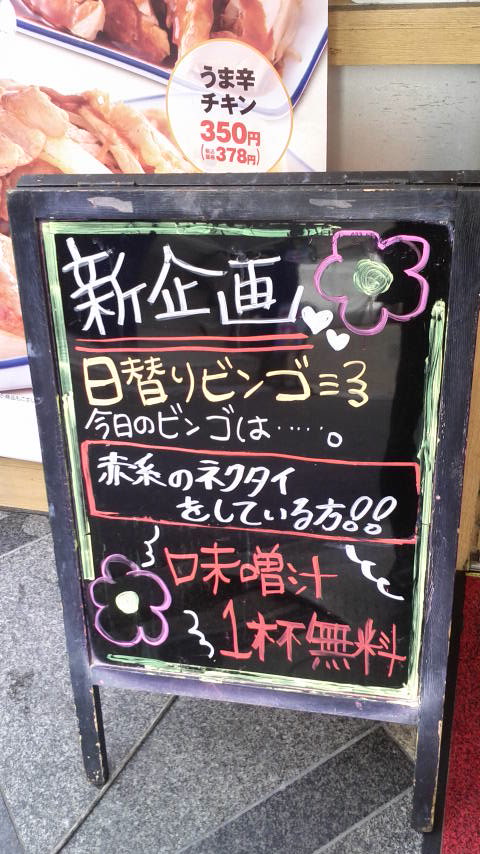 うま辛
チキン
350円
(税込価格 378円)
新企画
日替りビンゴ
今日のビンゴは……。
赤系のネクタイ
をしている方!!
味噌汁
1杯無料